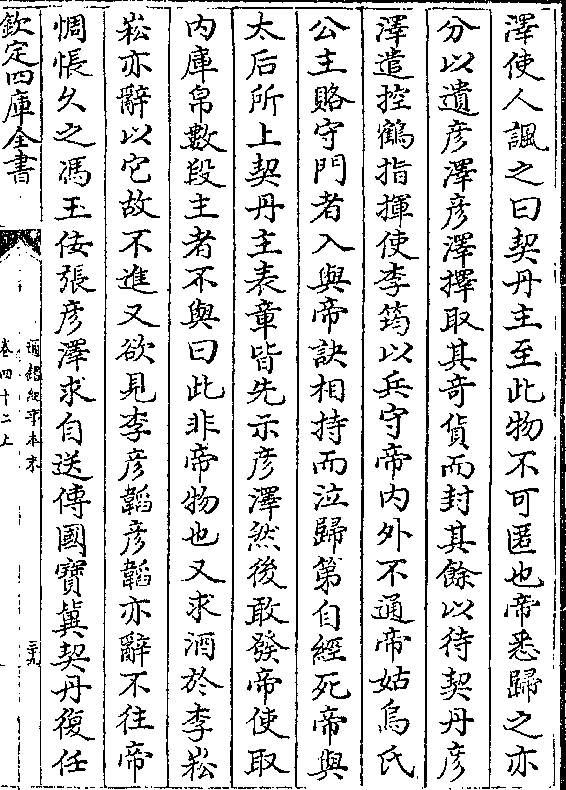 澤使人諷之曰契丹主至此物不可匿也帝悉歸之亦
分以遺彦澤彦澤擇取其竒貨而封其餘以待契丹彦
澤遣控鶴指揮使李筠以兵守帝内外不通帝姑烏氏
公主賂守門者入與帝訣相持而泣歸第自經死帝與
太后所上契丹主表章皆先示彦澤然後敢發帝使取
内庫帛數段主者不與曰此非帝物也又求酒於李崧
崧亦辭以它故不進又欲見李彦韜彦韜亦辭不往帝
惆悵久之馮玉佞張彦澤求自送傳國寶冀契丹復任
欽定四庫全書
通鑑紀事本末
卷四十二上
三十九